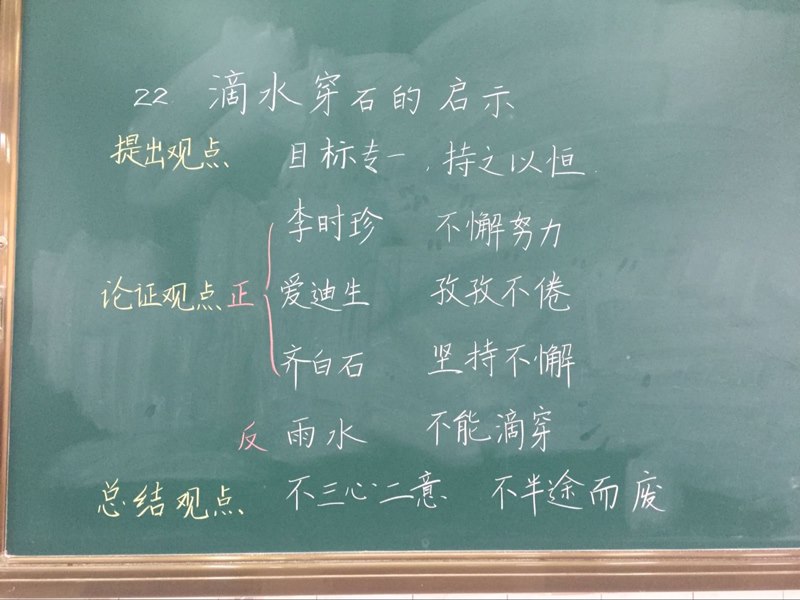 22 滴水穿石的启示
提出观点 目标专一,持之以恒.
李时珍 不懈努力
论证观点 正 爱迪生 孜孜不倦
齐白石 坚持不懈
反 雨水 不能滴穿
总结观点 不三心二意 不半途而废